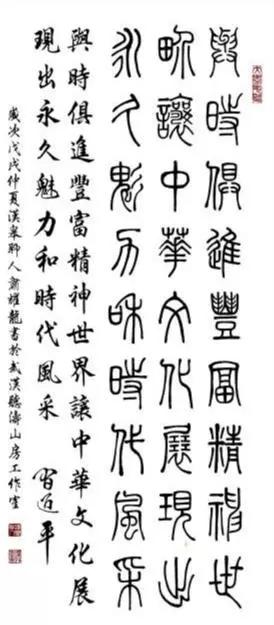 與時俱進豐富精神世
界讓中華文化展現出
永久魅力和時代風采
與時俱進豐富精神世界讓中華文化展
現出永久魅力和時代風采 習近平
歲次戊戌仲夏漢皋聊人蕭耀龍書於武漢聽濤山房工作室